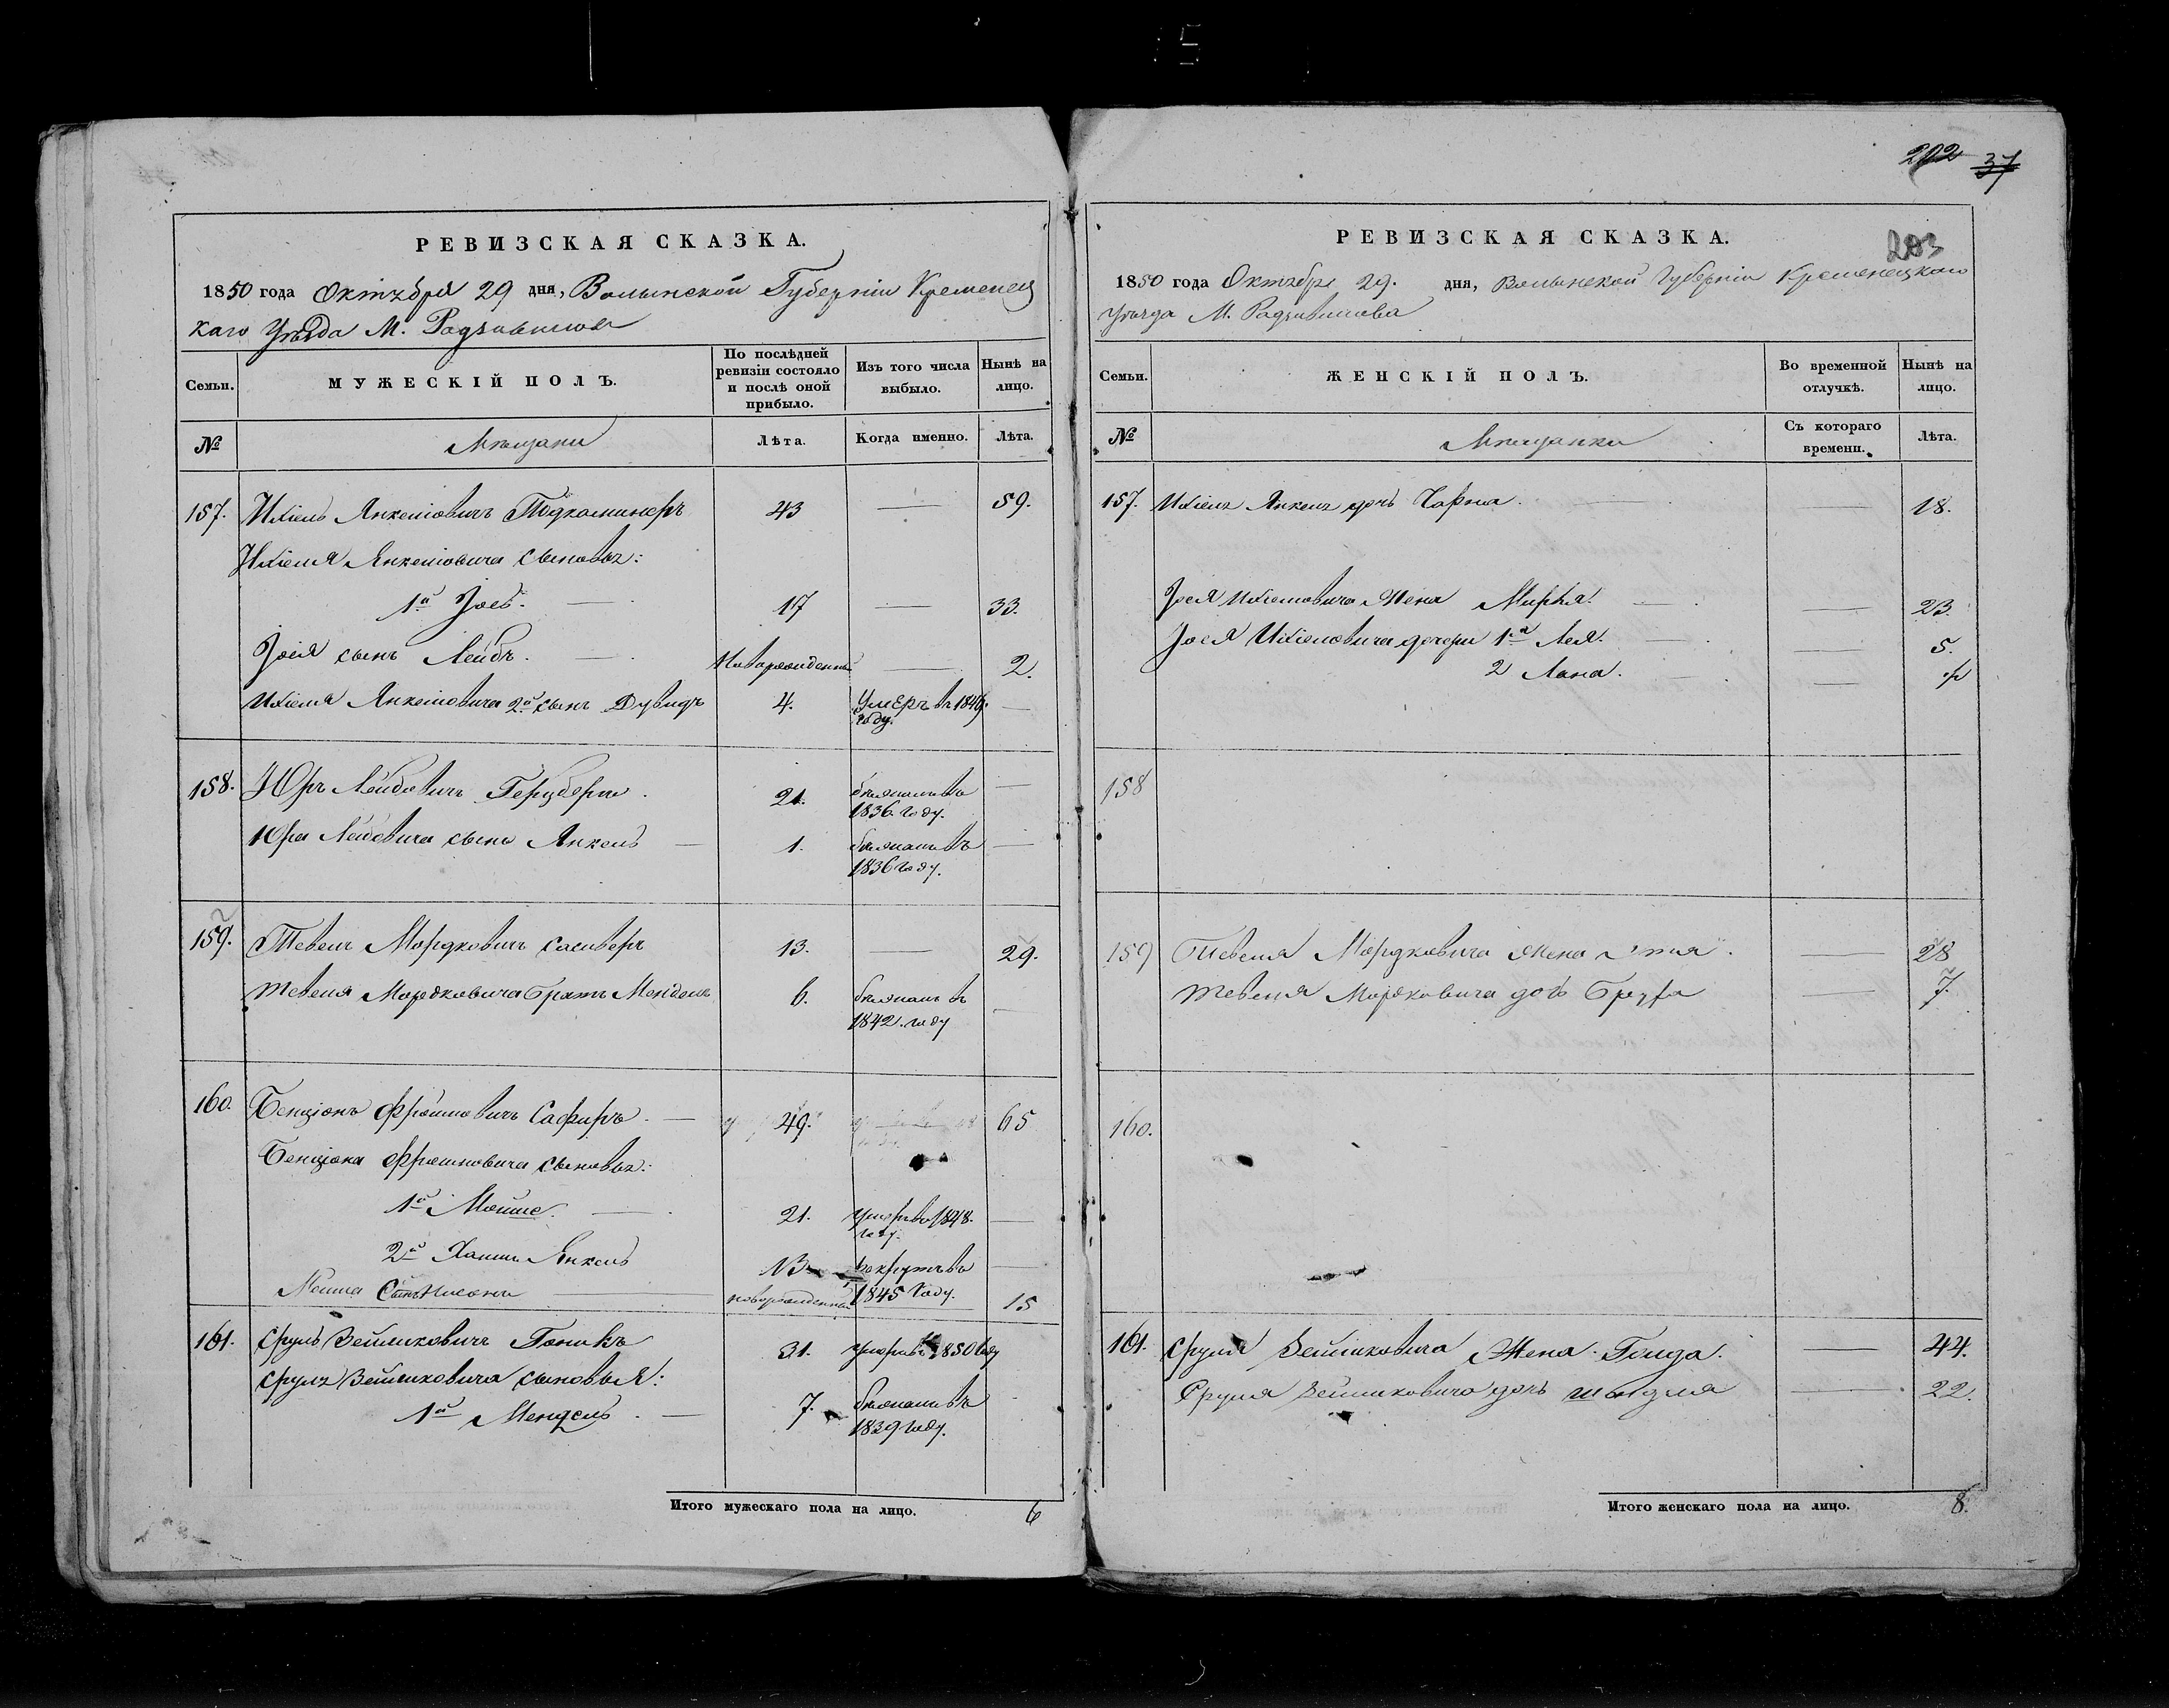 РЕВИЗСКАЯ СКАЗКА.
1850 года Октября 29 дня, Волынской Губерніи Кременец
каго Уѣзда М. Радзивилова
Семьи.
МУЖЕСКІЙ ПОЛЪ.
По послѣдней ревизіи состояло и послѣ оной прибыло.
Изъ того числа выбыло.
Нынѣ на лицо.
№ Мѣщани Лѣта. Когда именно. Лѣта.
157. Ихіель Янкелiовичъ Подкаминеръ 43 — 59.
Ихіеля Янкелiовича сыновья:
1й Iось. — 17 — 33.
Iося сынъ Лейбъ. — новорожденный — 2.
Ихіеля Янкелiовича 2й сынъ Дувидъ 4. Умеръ въ 1849. году. —
158. Юръ Лейбовичъ Герцбергъ. 21. безъ 1836 году. —
Юра Лейбовича сынъ Янкель — 1. 1836 году. —
159. Тевель Мордковичъ Саливеръ 13. — 29.
Тевеля Мордковича братъ Мендель 6. въ 1842. году —
160. Бенціонъ Фроимовичъ Сафиръ. — 49. 65
Бенціона Фроимовича сыновья:
1й Мойше. — 21. умеръ въ 1848. году. —
2й Хаимъ Янкель 13 рекрутъ въ 1845 году. —
Мошка Сынъ Нисонъ — новорожденный 15
161. Сруль Зейликовичъ Гоникъ 31. умеръ въ 1850 году
Сруля Зейликовича сыновья:
1й Мендель. — 7. 1839 году.
Итого мужескаго пола на лицо. 6
202 37
203
РЕВИЗСКАЯ СКАЗКА.
1850 года Октября 29. дня, Волынской Губерніи Кременецкаго
Уѣзда М. Радзивилова
Семьи.
ЖЕНСКІЙ ПОЛЪ.
Во временной отлучкѣ.
Нынѣ на лицо.
№ Мѣщанки Съ котораго времени. Лѣта.
157. Ихіеля Янкеля дочь Чарна. — — 18.
Iося Ихіеловича Жена Мирля. — — 23.
Iося Ихіеловича дочери 1я Лея. — — 5.
2 Лана. — —
158
159 Тевеля Мордковича жена Этя. — 28
Тевеля Мордковича дочь Брура — 7.
160.
161. Сруля Зейликовича Жена Голда. — 44.
Сруля Зейликовича дочь Шейдля — 22.
Итого женскаго пола на лицо. 8.